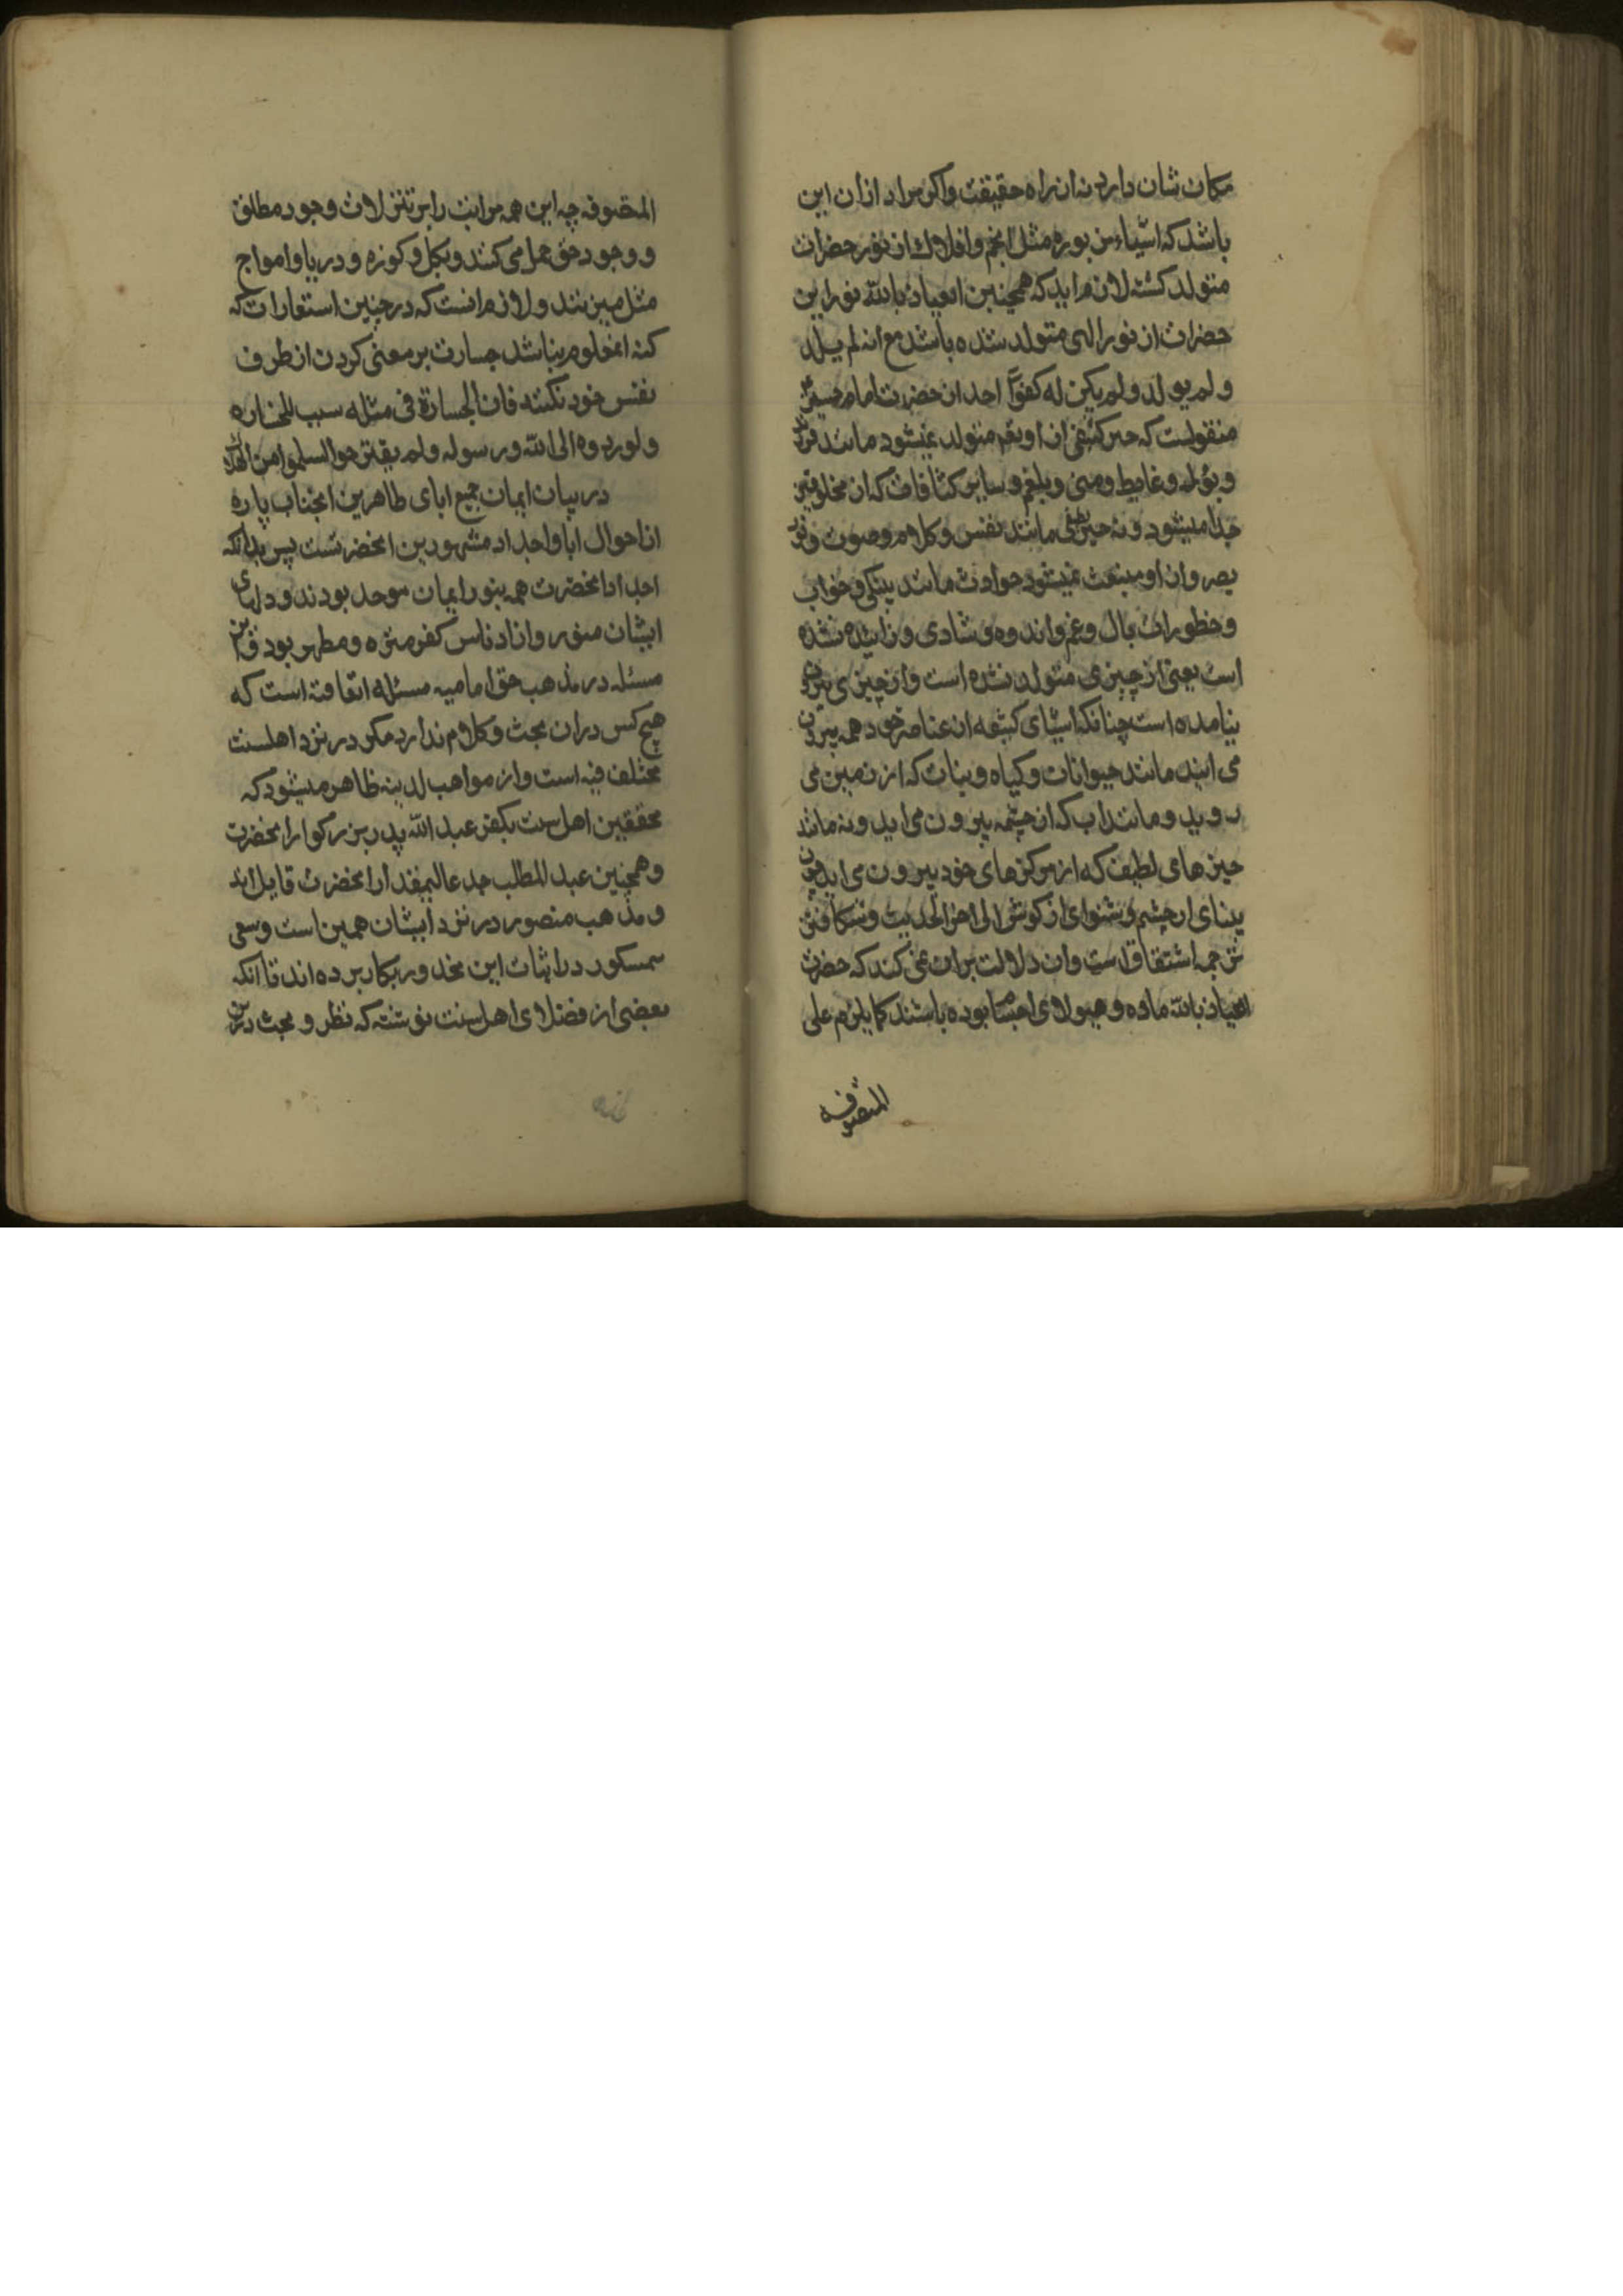 مکان شان دارد نه از راه حقیقت واکر مراد از ان این
باشد که اشیاء مزبوره مثل انجم وافلاک از نور حضرات
متولد کشته لازم اید که همچنین العیاذ بالله نور این
حضرات از نور الهی متولد شده باشد مع انه لم یلد
ولم یولد ولم یکن له کفوا احد از حضرت امام حسین
منقولست که چیز کثیفی از او بهم متولد نمیشود مانند
وبول وغایط ومنی وبلغم وسایر کثافات که از مخلوقین
جدا میشود ونه چیز مانند نفس وکلام وصوت ونور
بصر واز او منبعث نمیشود حوادث مانند پینکی وخواب
وخطورات بال وغم واندوه وشادی وزاییده نشده
است یعنی از چیزی متولد نشده است واز چیزی بیرون
نیامده است چنانکه اشیای کثیفه از عناصر خود همه بیرون
می ایند مانند حیوانات وکیاه ونبات که از زمین می
روید ومانند اب که از چشمه بیرون می اید ونه مانند
چیزهای لطیف که از مرکزهای خود بیرون می اید چون
بینای از چشم وشنوای از کوش الی اخر الحدیث وشکافتن
ترجمه اشتقاق است وان دلالت بران نمی کند که حضرات
العیاذ بالله ماده وهیولای اجسام بوده باشند کما یلزم علی
المتصوفه
المتصوفه چه این همه مراتب را بر تنزلات وجود مطلق
ووجود حق حمل می کنند وبکل وکوزه ودریا وامواج
مثل میزنند ولازم انست که در چنین استعارات که
کنه ان معلوم نباشد جسارت بر معنی کردن از طرف
نفس خود نکنند فان الجسارة فی مثله سبب للخساره
ولو ردوه الی الله ورسوله ولم
در بیان ایمان جمیع ابای طاهرین انجناب پاره
از احوال ابا واجداد مشهورین انحضرتست پس بدانکه
اجداد انحضرت همه بنور ایمان موحد بودند ودلهای
ایشان منور واز ادناس کفر منزه ومطهر بود واین
مسئله در مذهب حق امامیه مسئله اتفاقیه است که
هیچ کس دران بحث وکلام ندارد مکر در نزد اهلسنت
مختلف فیه است واز مواهب لدنیه ظاهر میشود که
محققین اهل سنت بکفر عبد الله پدر بزرکوار انحضرت
وهمچنین عبد المطلب جد عالیمقدار انحضرت قایل اند
ومذهب منصور در نزد ایشان همین است وسعی
مشکور در اثبات این محذور بکار برده اند تا انکه
بعضی از فضلای اهل سنت نوشته که نظر وبحث درین